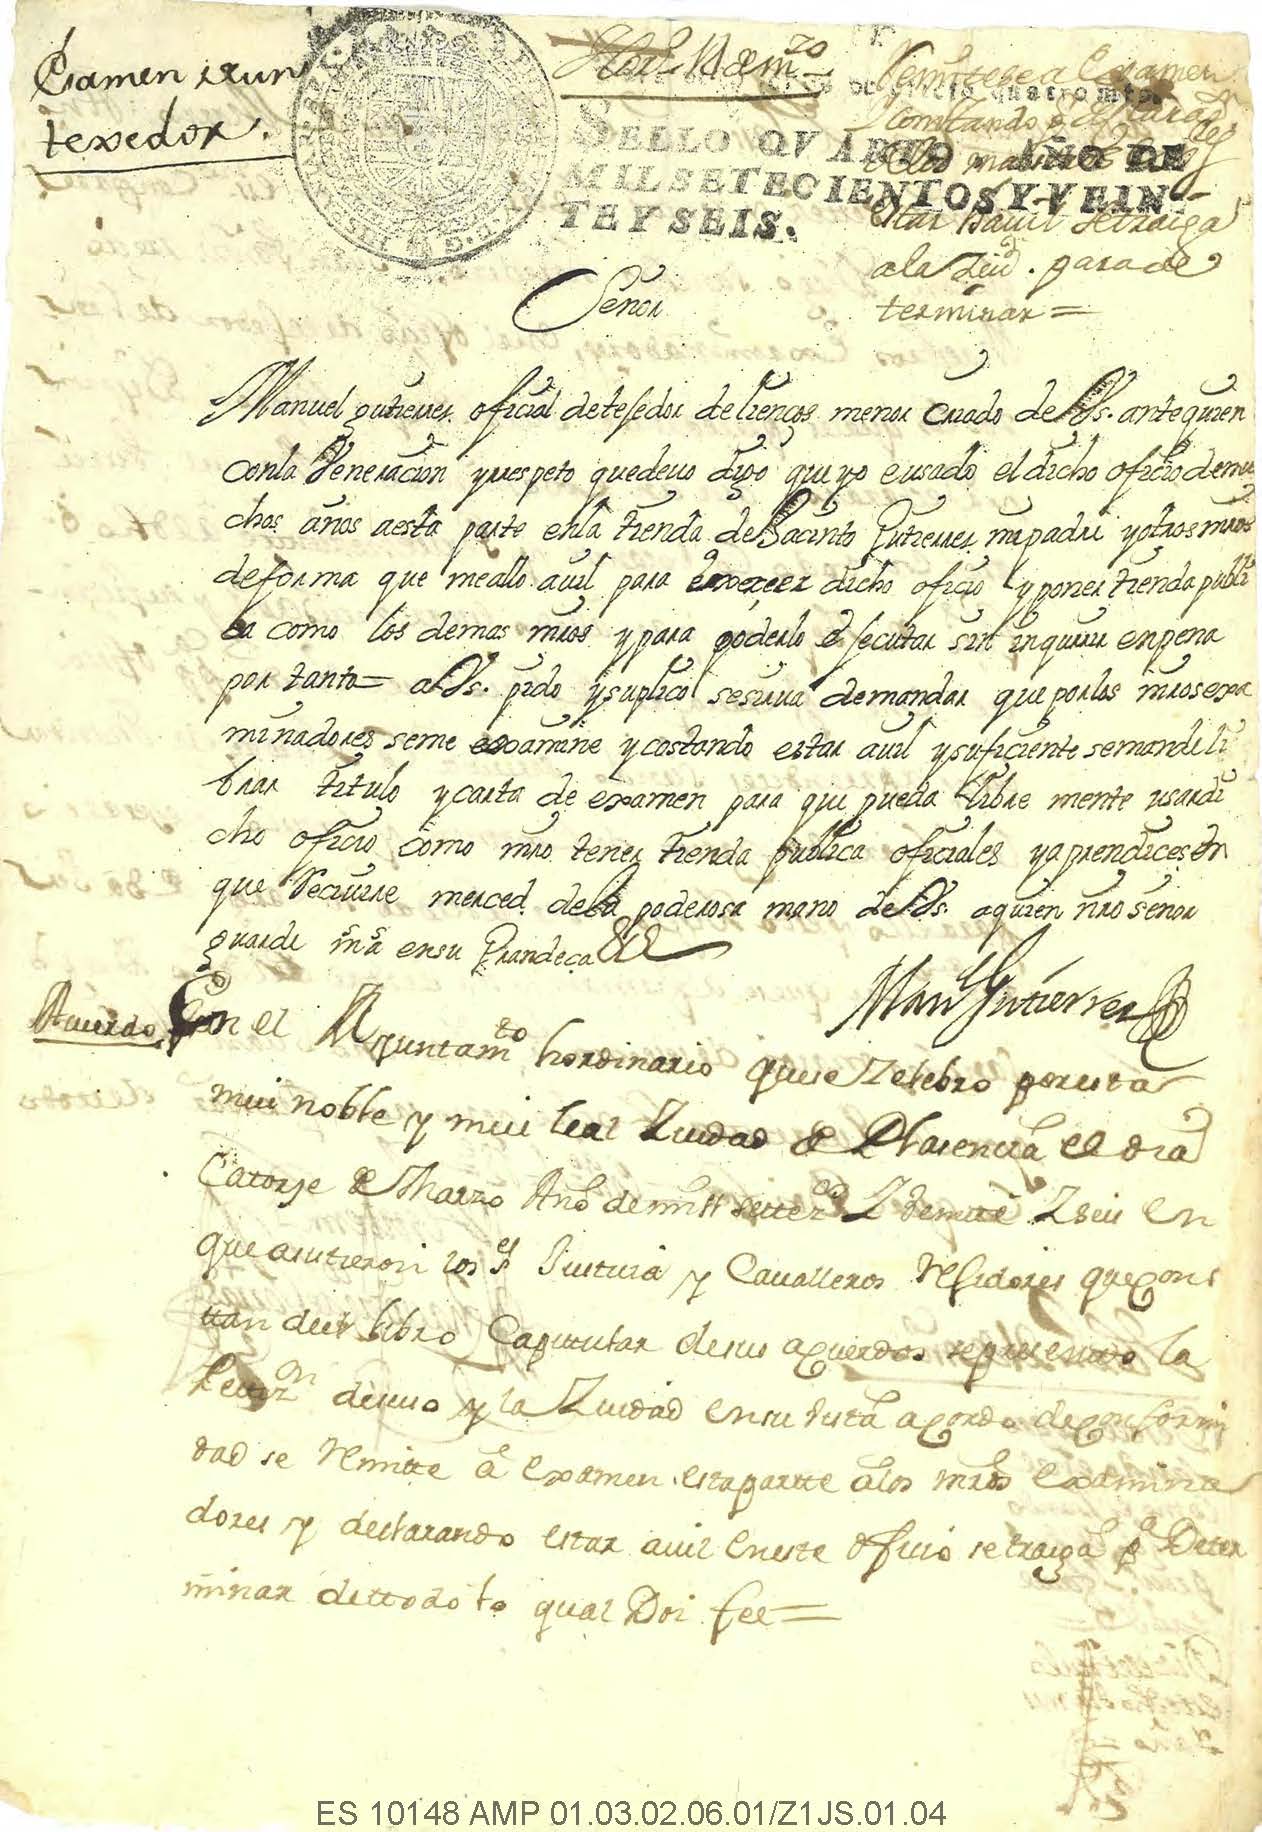 Examen de un
texedor.
Hor.º 14 de m.zo
SELLO QVARTO, AÑO DE
MIL SETECIENTOS Y VEIN
TE Y SEIS.
Remitese a Examen
Constando
estar havil se traiga
a la Ziud. para de
terminar =
Señor
Manuel gutierrez oficial de tesedor de lienços menor criado de Vs. ante quien
con la Veneracion y respeto que devo digo que yo e usado el dicho oficio de mu
chos años a esta parte en la tienda de Jacinto Gutierrez mi padre y otros mros
de forma que me allo avil para exerçer dicho oficio y poner tienda publi
ca como los demas mros y para poderlo esecutar sin inqurrir en pena
por tanto = a Vs. pido y suplico se sirva de mandar que por los mros exa
minadores se me examine y costando estar avil y suficiente se mande li
brar titulo y carta de examen para que pueda libre mente usar di
cho oficio como mro tener tienda publica oficiales y aprendices en
que Recivire merced de la poderosa mano de Vs. a quien nro señor
guarde m.s a.s en su Grandeça &
Man.l Gutierrez
Acuerdo
En el Ayuntam.to hordinario que se Zelebro por esta
mui noble y mui leal Ziudad de Plasencia el dia
Catorze de Marzo Año de mill settez.os Z veinte Z seis en
que asistieron los s.res Justicia y Cavalleros Rejidores que cons
ttan del libro Capitular de sus acuerdos se presento la
Petiz.on de suso y la Ziudad en su vista acordo de conformi
dad se Remite a Examen esta partte a los mros Examina
dores y declarando estar avil en este oficio se traiga p.a Deter
minar de ttodo lo qual Doi fee =
ES 10148 AMP 01.03.02.06.01/Z1JS.01.04